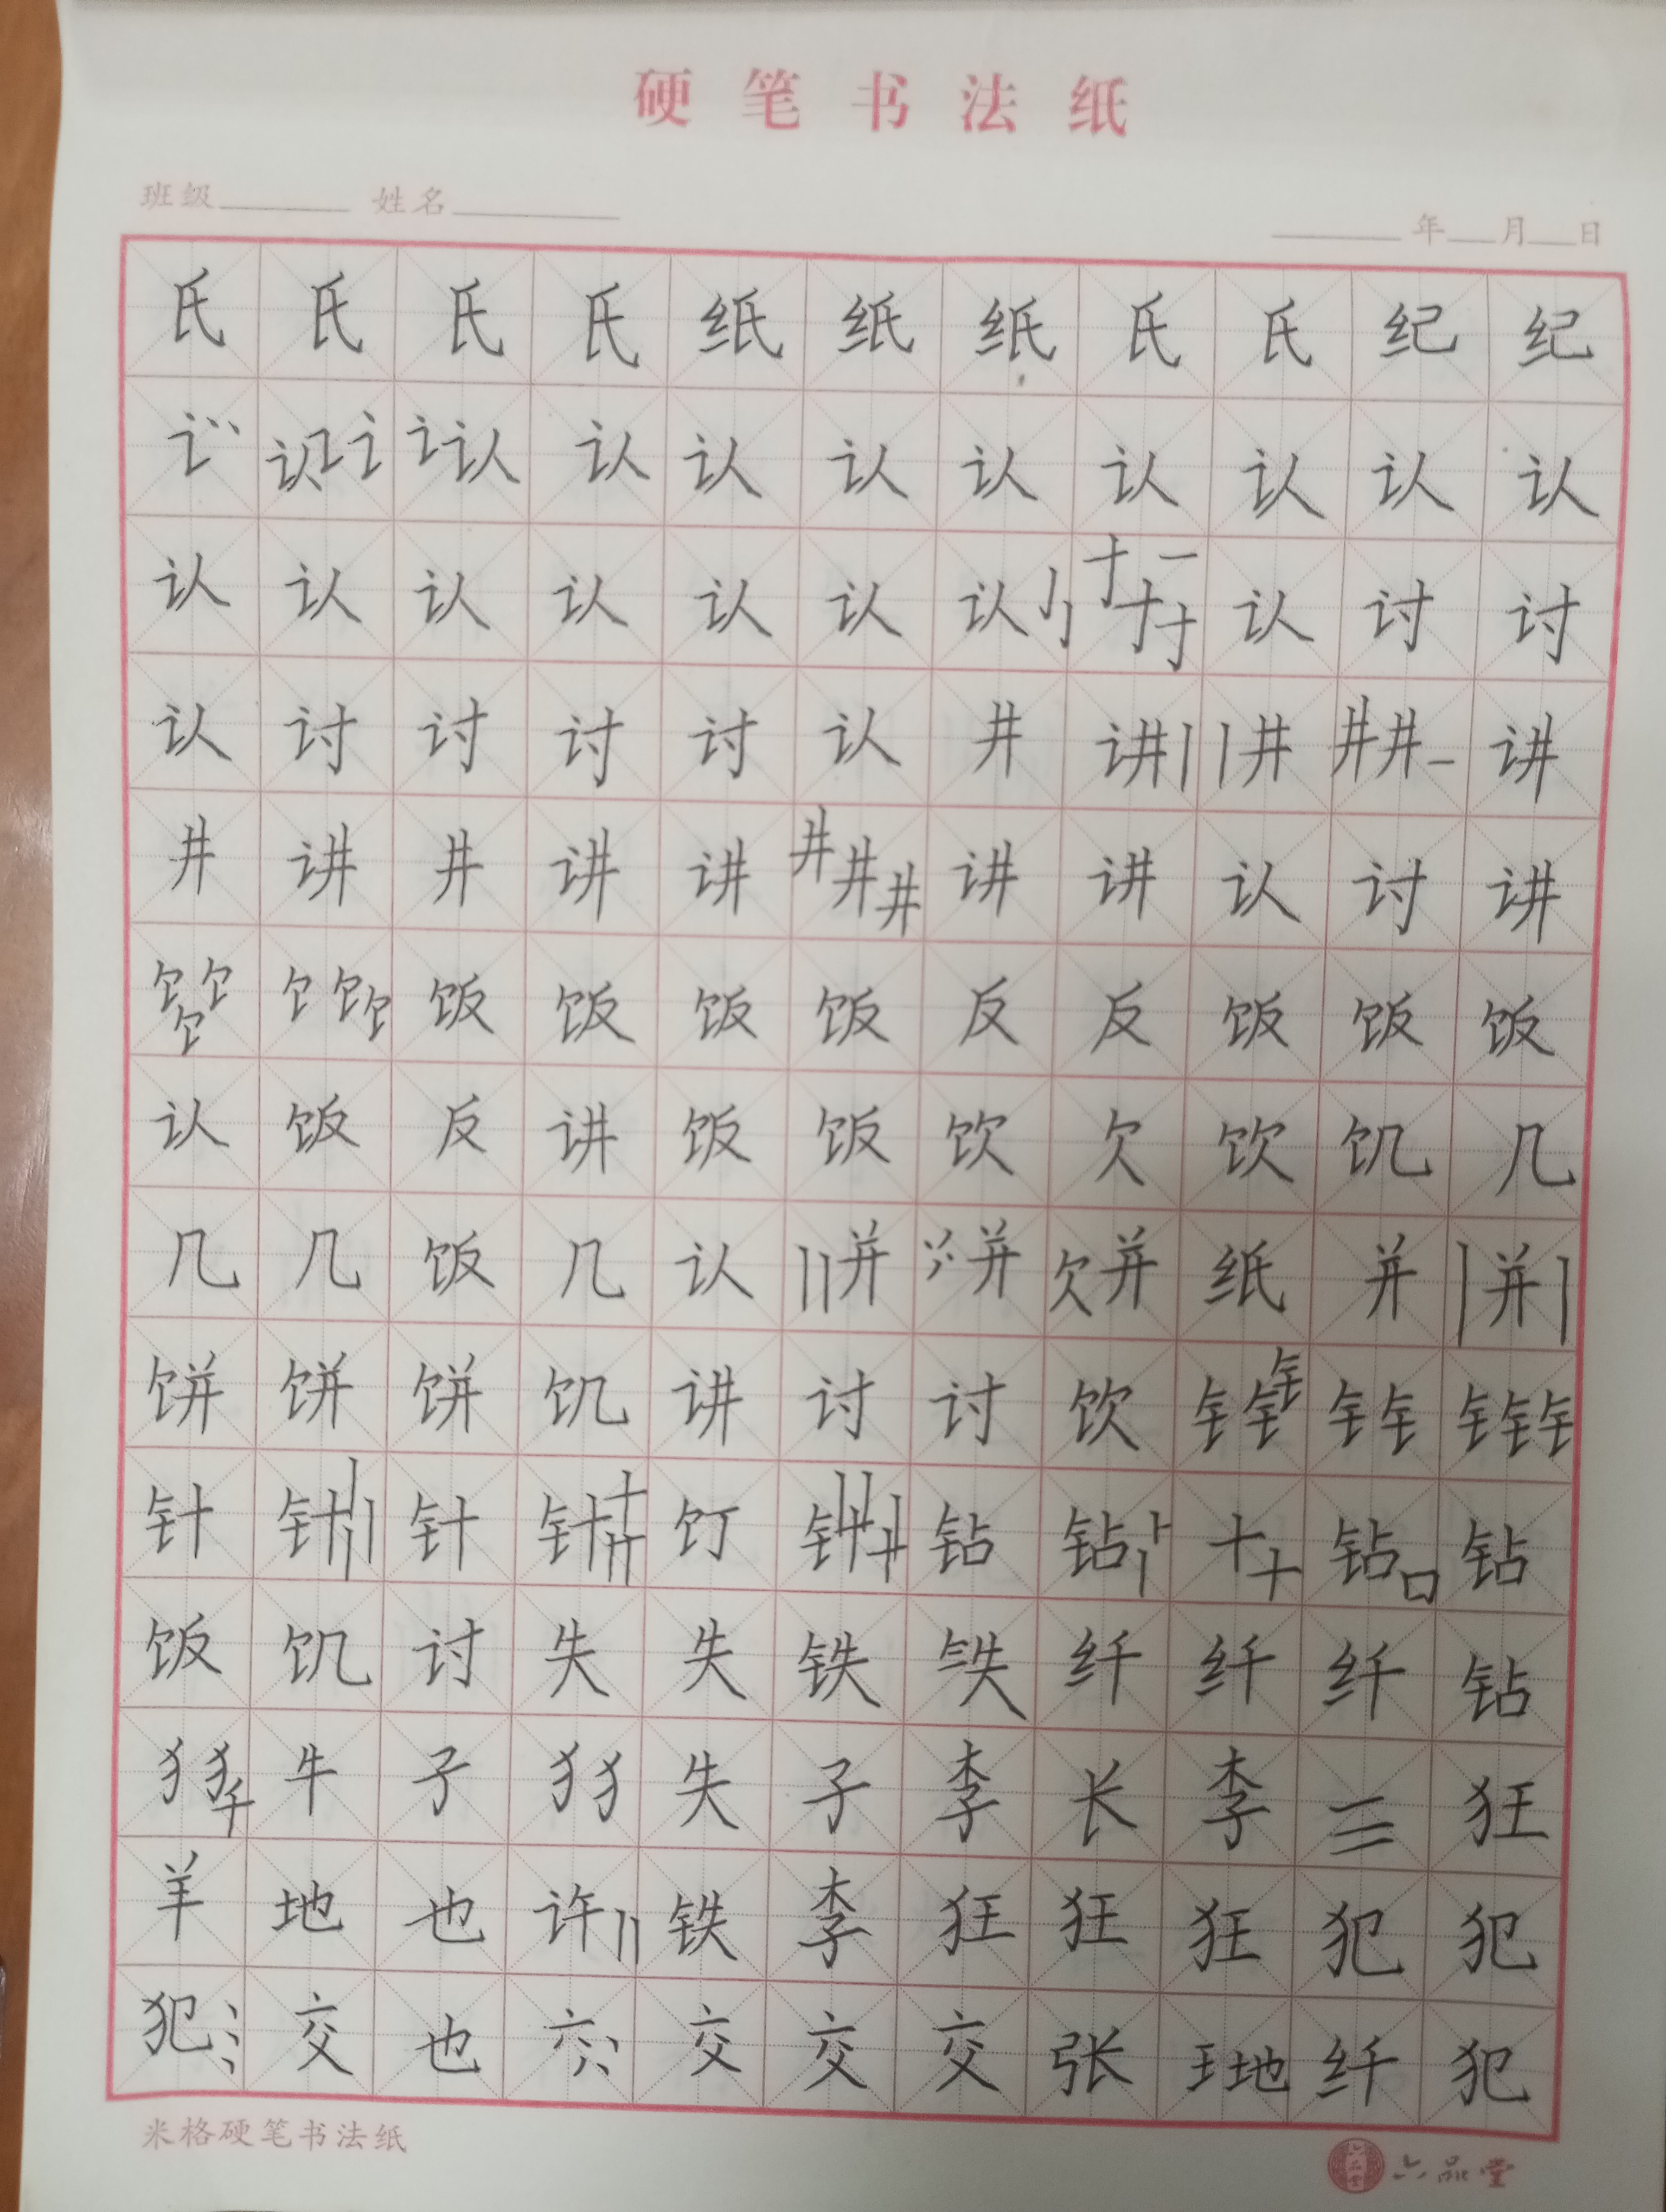 硬笔书法纸
班级 姓名
年 月 日
氏 氏 氏 氏 纸 纸 纸 氏 氏 纪 纪
讠 认 讠 讠 认 认 认 认 认 认 认 认 认
认 认 认 认 认 认 认 十 一 寸 寸 认 讨 讨
认 讨 讨 讨 讨 认 井 讲 井 井 井 一 讲
井 讲 井 讲 讲 井 井 井 讲 讲 认 讨 讲
饣 饣 饣 饣 饣 饣 饭 饭 饭 饭 反 反 饭 饭 饭
认 饭 反 讲 饭 饭 饮 欠 饮 饥 几
几 几 饭 几 认 并 并 欠 并 纸 并 并
饼 饼 饼 饥 讲 讨 讨 饮 钅 钅 钅 钅 钅 钅 钅 钅
针 针 针 针 十 饤 针 钻 钻 卜 十 十 钻 口 钻
饭 饥 讨 失 失 铁 失 纤 纤 纤 钻
犭 犭 千 牛 子 犭 犭 失 子 李 长 李 三 狂
羊 地 也 许 铁 李 狂 狂 狂 犯 犯
犯 交 也 六 交 交 交 张 王 地 纤 犯
米格硬笔书法纸
六品堂